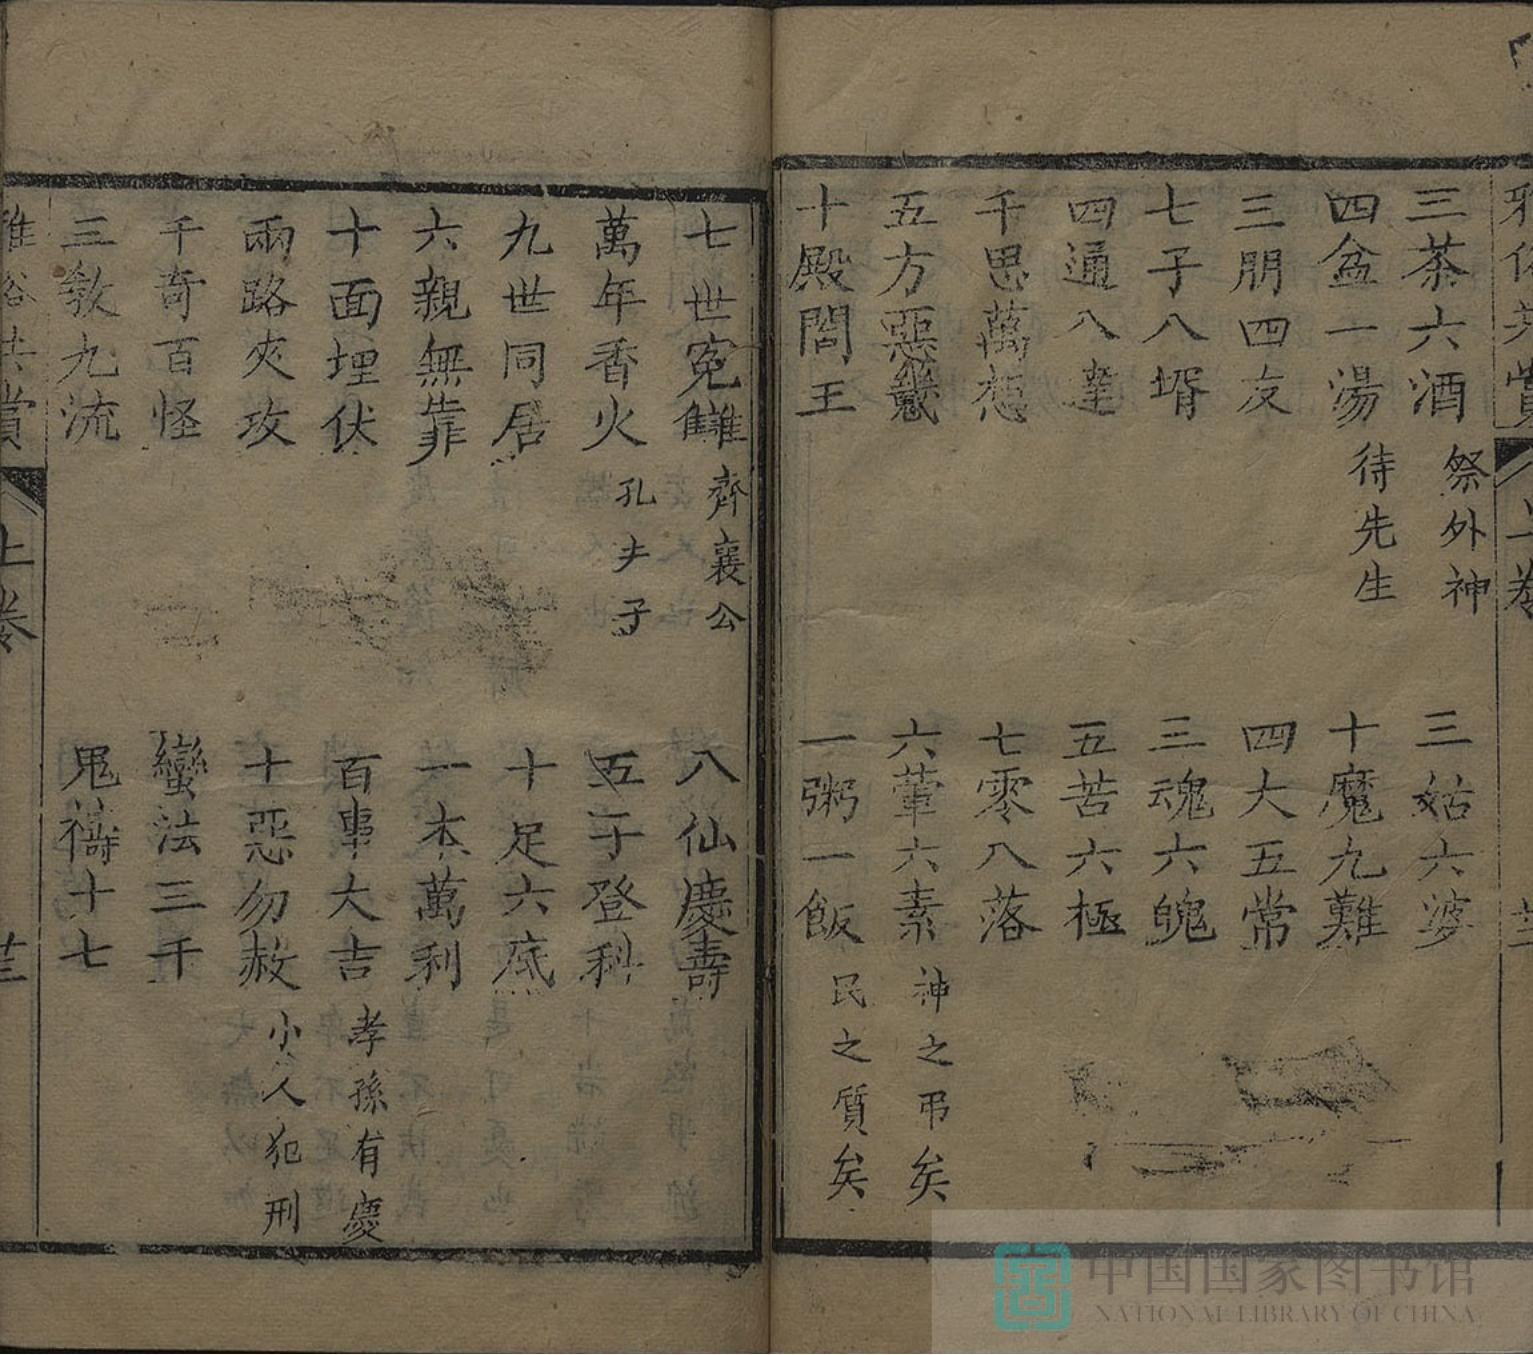 三茶六酒 祭外神 三姑六婆
四盆一湯 待先生 十魔九難
三朋四友 四大五常
七子八壻 三魂六魄
四通八達 五苦六極
千思萬想 七零八落
五方惡 六葷六素 神之弔矣
十殿閻王 一粥一飯 民之質矣
七世冤讎 齊襄公 八仙慶壽
萬年香火 孔夫子 五子登科
九世同居 十足六底
六親無靠 一本萬利
十面埋伏 百事大吉 孝孫有慶
兩路夾攻 十惡勿赦 小人犯刑
千奇百怪 蠻法三千
三教九流 鬼禱十七
雅俗共賞 上卷
中国国家图书馆
NATIONAL LIBRARY OF CHINA